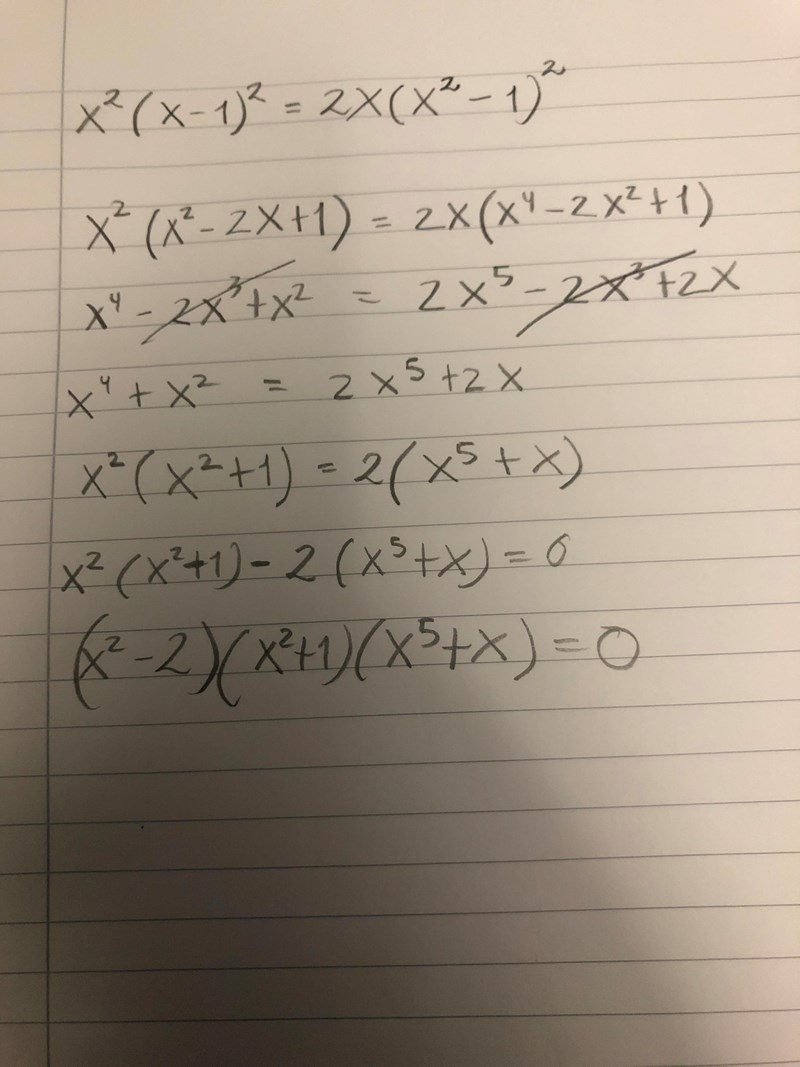 x² (x-1)² = 2x(x² - 1)²
x² (x² - 2x+1) = 2x(x⁴ - 2x² +1)
x⁴ - 2x³ + x² = 2x⁵ - 2x³ +2x
x⁴ + x² = 2x⁵ +2x
x² (x²+1) = 2(x⁵ + x)
x² (x²+1) - 2 (x⁵+x) = 0
(x² -2)(x²+1)(x⁵+x) = 0